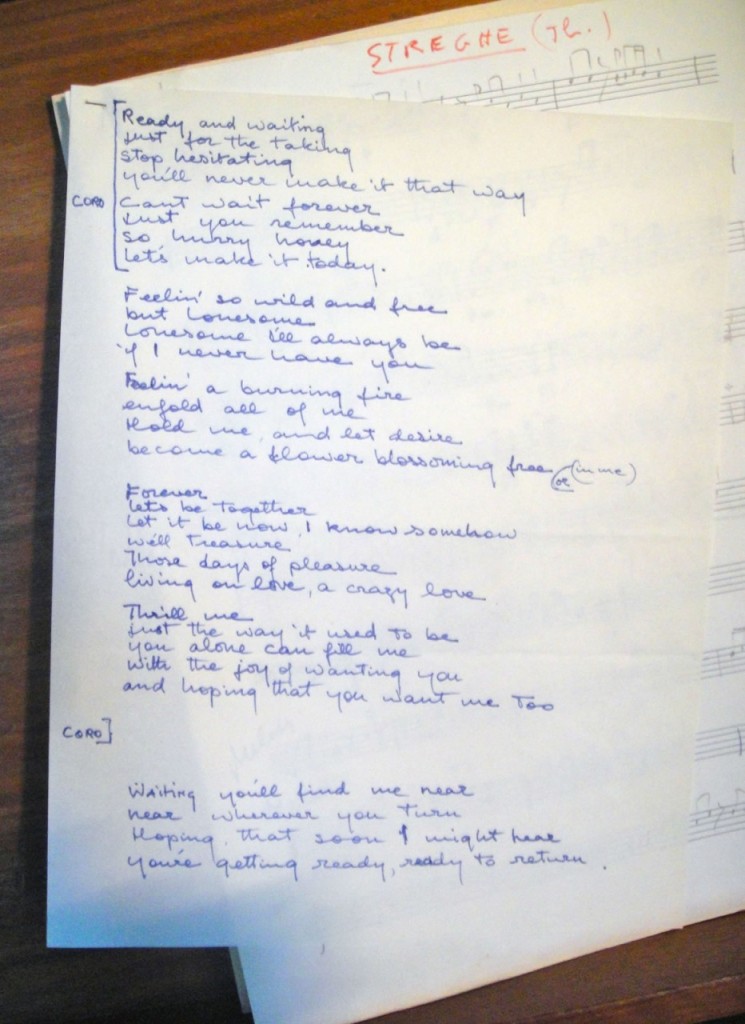 STREGHE (Th.)
Ready and waiting
just for the taking
stop hesitating
you'll never make it that way
CORO
Cant wait forever
Just you remember
so hurry honey
Let's make it today.
Feelin' so wild and free
but lonesome
Lonesome I'll always be
if I never have you
Feelin' a burning fire
enfold all of me
Hold me, and let desire
become a flower blossoming free (in me)
or
Forever
Let's be together
Let it be now, I know somehow
we'll treasure
Those days of pleasure
living on love, a crazy love
Thrill me
just the way it used to be
you alone can fill me
With the joy of wanting you
and hoping that you want me Too
CORO]
Waiting you'll find me near
near wherever you Turn
Hoping, that soon I might hear
you're getting ready, ready to return.